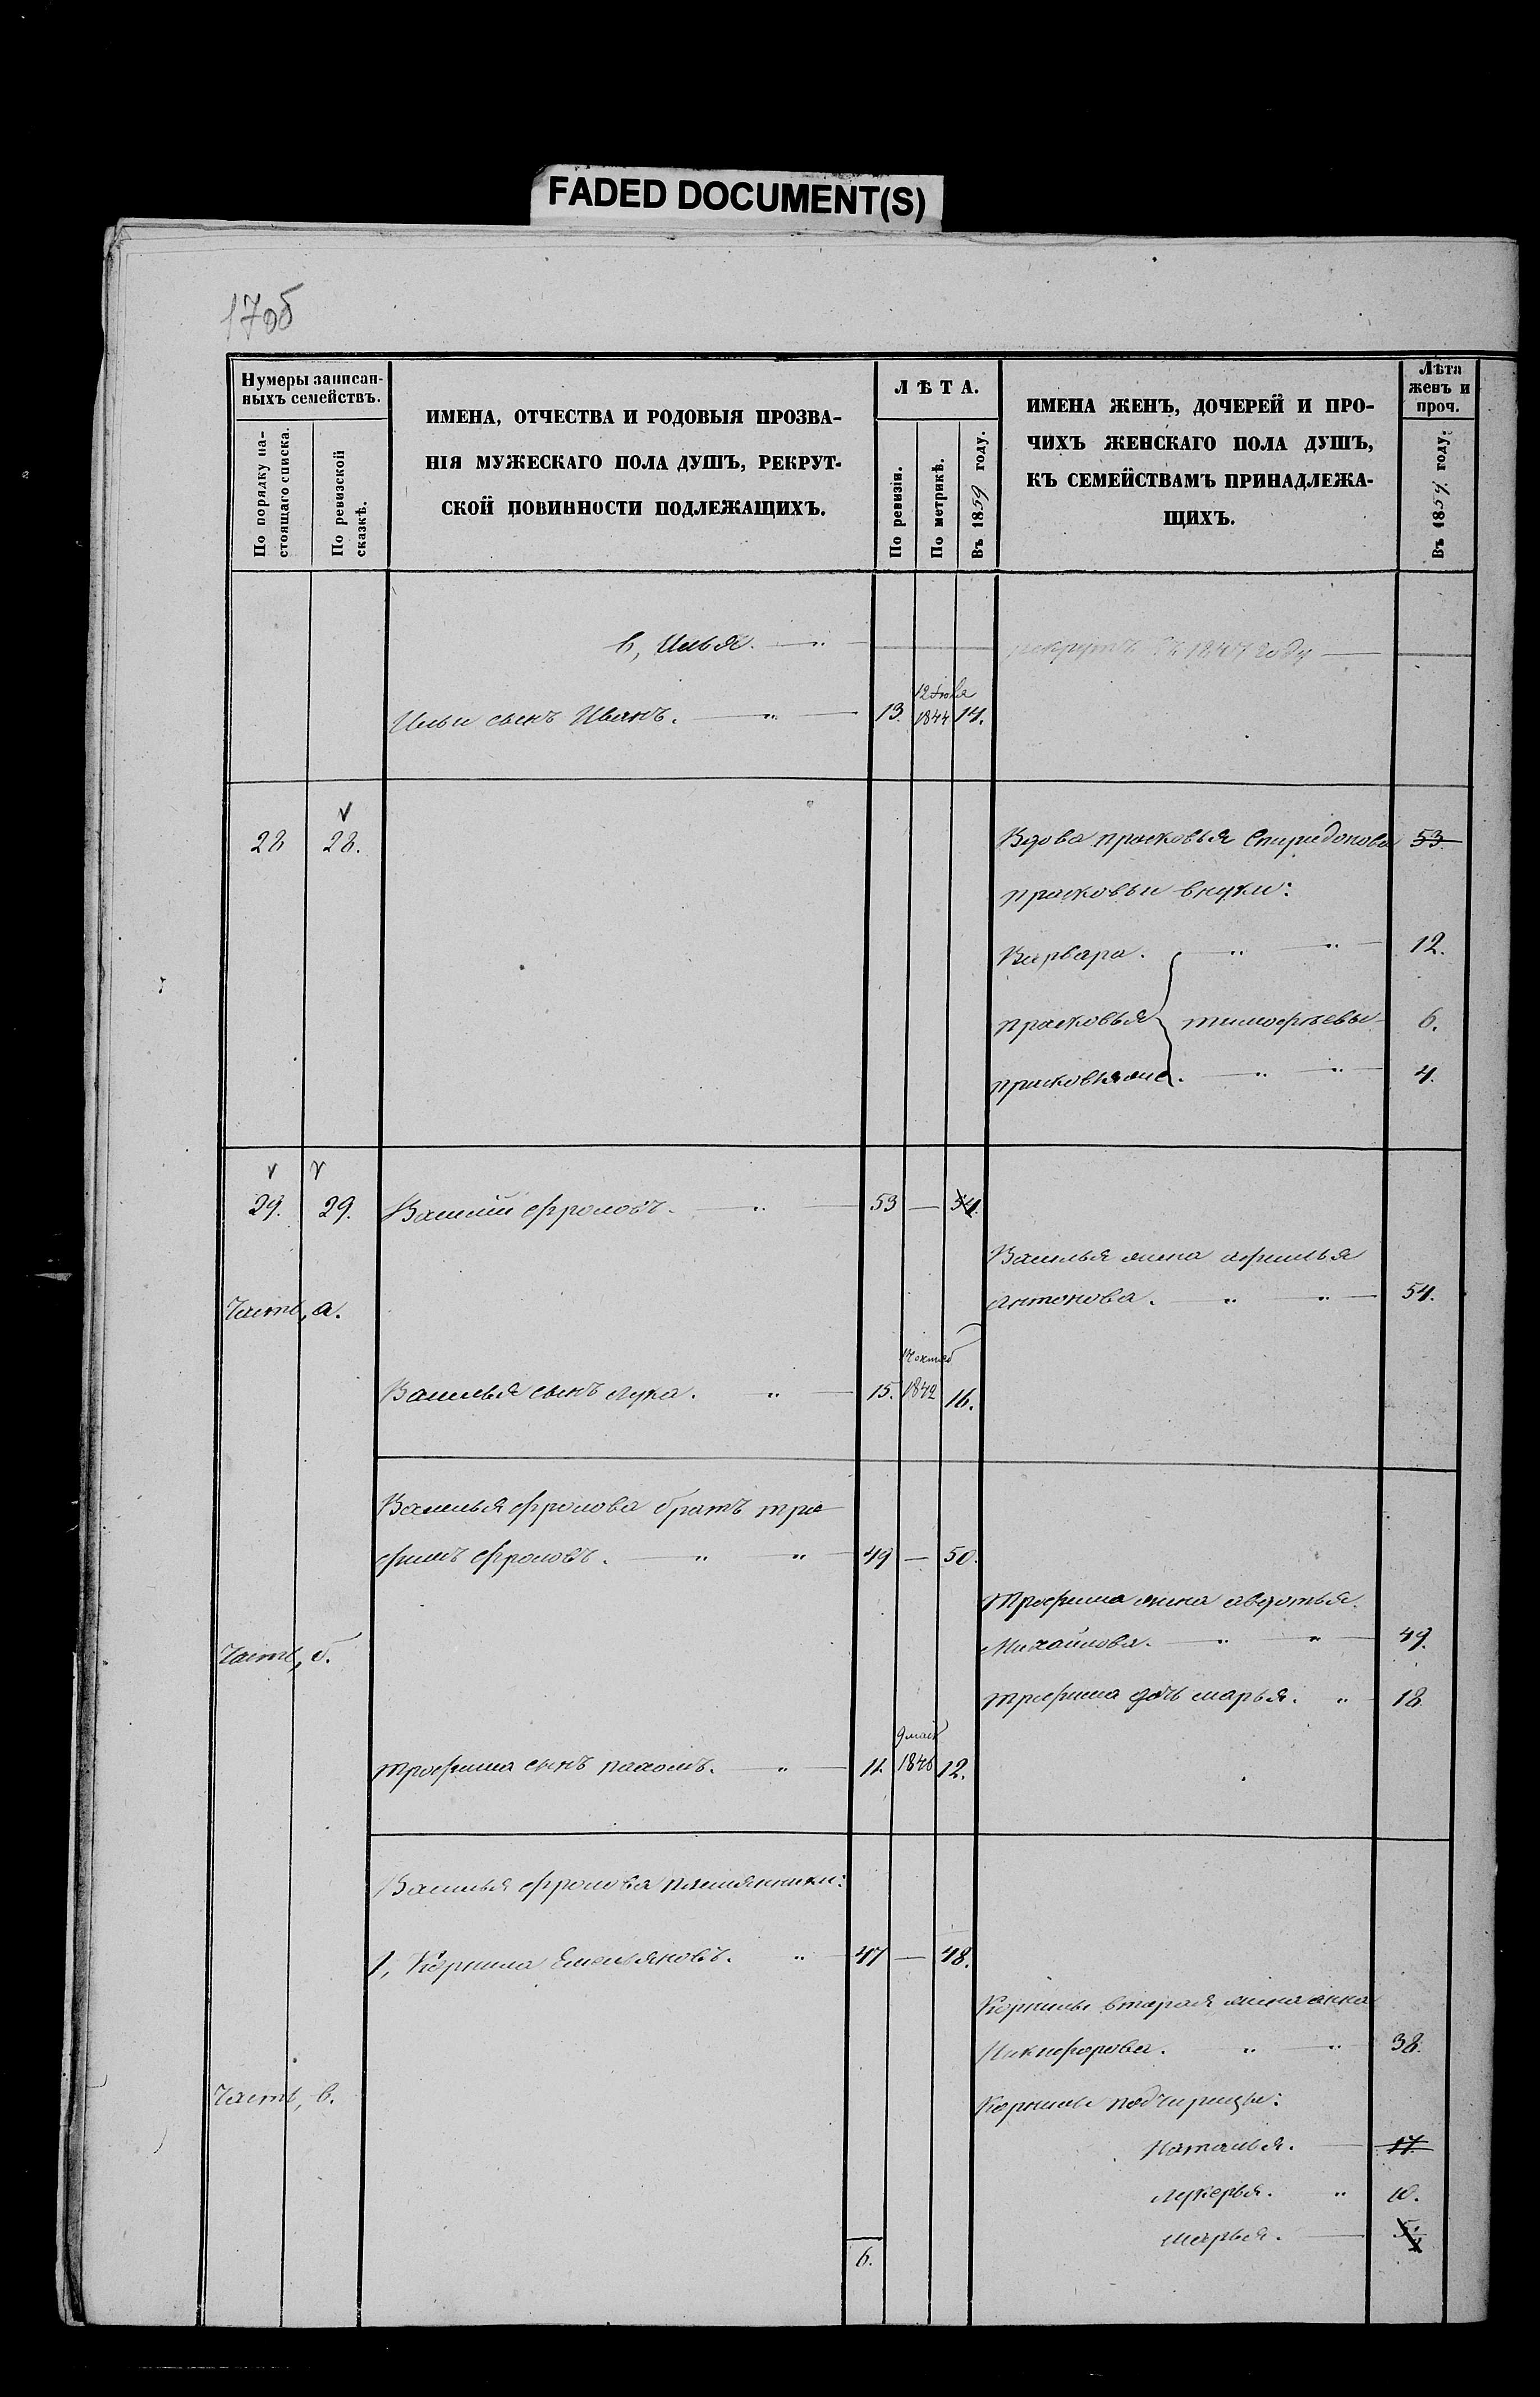 FADED DOCUMENT(S)
17об
Нумеры записан-
ныхъ семействъ.
По порядку на-
стоящаго списка.
По ревизской
сказкѣ.
ИМЕНА, ОТЧЕСТВА И РОДОВЫЯ ПРОЗВА-
НІЯ МУЖЕСКАГО ПОЛА ДУШЪ, РЕКРУТ-
СКОЙ ПОВИННОСТИ ПОДЛЕЖАЩИХЪ.
ЛѢТА.
По ревизіи.
По метрикѣ.
Въ 1859 году.
ИМЕНА ЖЕНЪ, ДОЧЕРЕЙ И ПРО-
ЧИХЪ ЖЕНСКАГО ПОЛА ДУШЪ,
КЪ СЕМЕЙСТВАМЪ ПРИНАДЛЕЖА-
ЩИХЪ.
Лѣта
женъ и
проч.
Въ 1859 году.
в, Илья. — " —
рекрутъ въ году —
Ильи сынъ Иванъ. — " — 13. 1844 14.
28 28. Вдова прасковья Спиридонова 53
прасковьи внуки:
Варвара. — " " — 12.
прасковья тимофѣевы 6.
прасковья же. — " " — 4.
29. 29. Василій фроловъ. — " — 53 — 54.
Василья жена афимья
антонова. — " " — 54.
Часть, а.
14 октяб
Василья сынъ лука. " — 15. 1842 16.
Василья фролова братъ тро-
фимъ фроловъ. — " " — 49 — 50.
трофима жена авдотья
Михайлова. — " " — 49.
Часть, б.
трофима дочь марья. " — 18
9 мая
трофима сынъ пахомъ. — " — 11. 1846 12.
Василья фролова племянники:
1, Корнила Емельяновъ. " — 47 — 48.
Корнилы вторая жена анна
Никифорова. " " — 38.
Часть, в.
Корнилы подчирицы:
Наталья. — 17.
лукерья. " 10.
марья. — 5.
6.